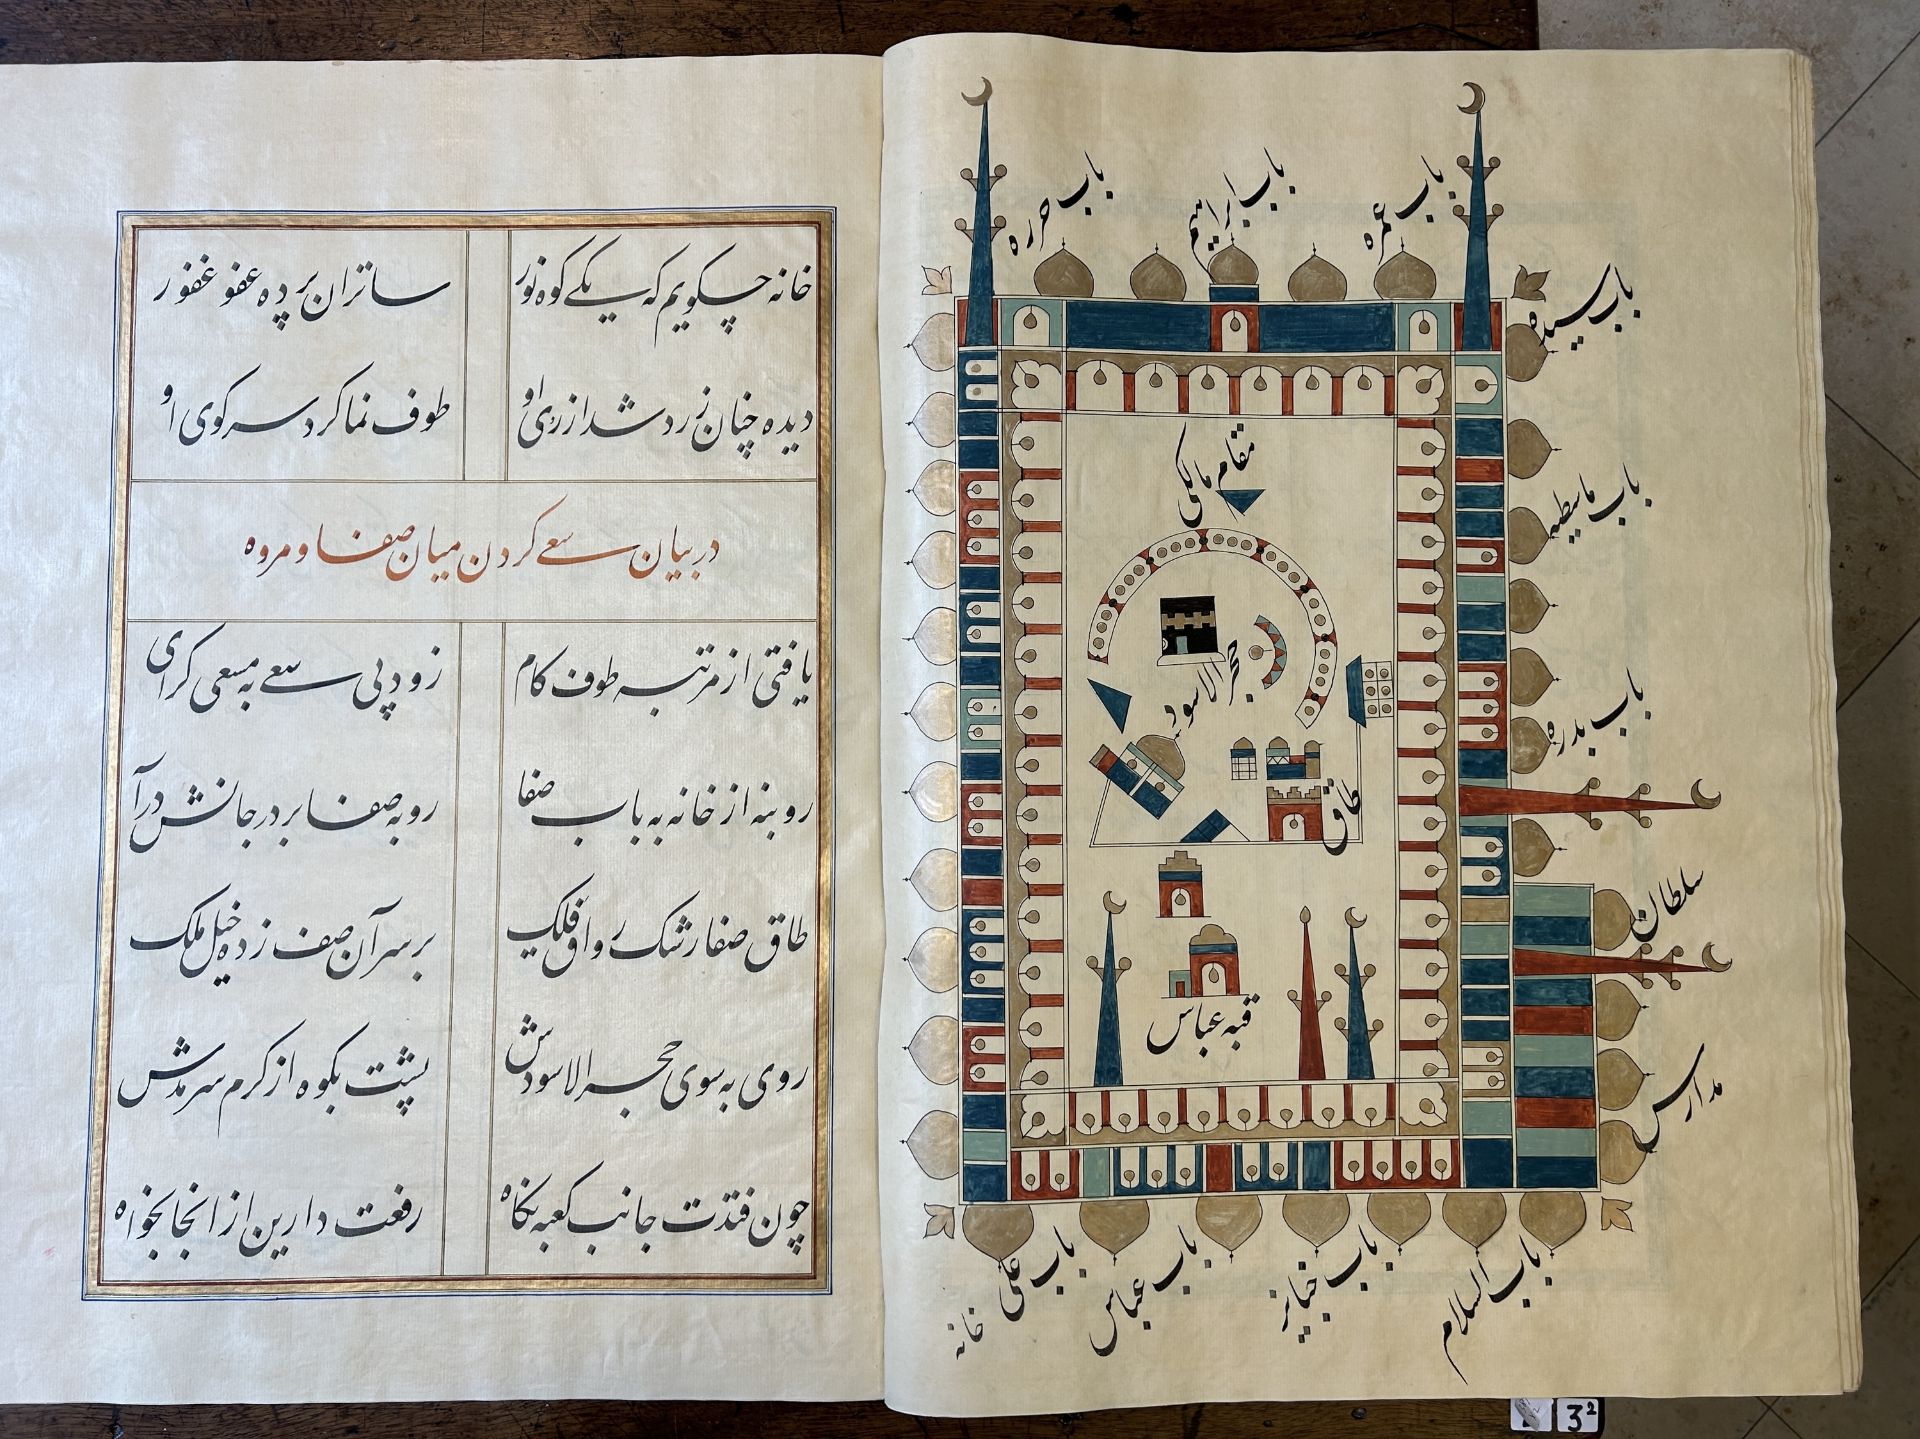 باب حرره
باب ابراهیم
باب عمره
باب سیده
باب ماسطیه
باب بدره
سلطان
مدارس
مقام مالکی
حجر الاسود
طاق
قبه عباس
خانه
باب علی
باب عباس
باب جنایز
باب السلام
خانه چکویم که یکی کوه نور ساتران پرده عفو غفور
دیده چنان زرد شد از زی او طوف نما کرد سر کوی او
در بیان سعی کردن میان صفا و مروه
یافتی از مرتبه طوف کام زود پی سعی به مسعی کرای
رو بنه از خانه به باب صفا رو به صفا بر در جانش درآ
طاق صفا رشک رواق فلک بر سر آن صف زده خیل ملک
روی به سوی حجر الاسودش پشت بکوه از کرم سرمدش
چون فتدت جانب کعبه نکاه رفعت دارین از انجا بخواه